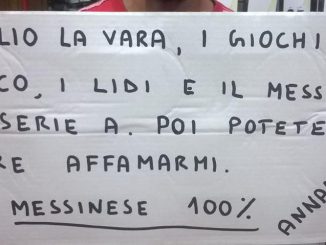 LIO LA VARA, I GIOCHI
CO, I LIDI E IL MESS
SERIE A. POI POTETE
RE AFFAMARMI.
MESSINESE 100%
ANNA